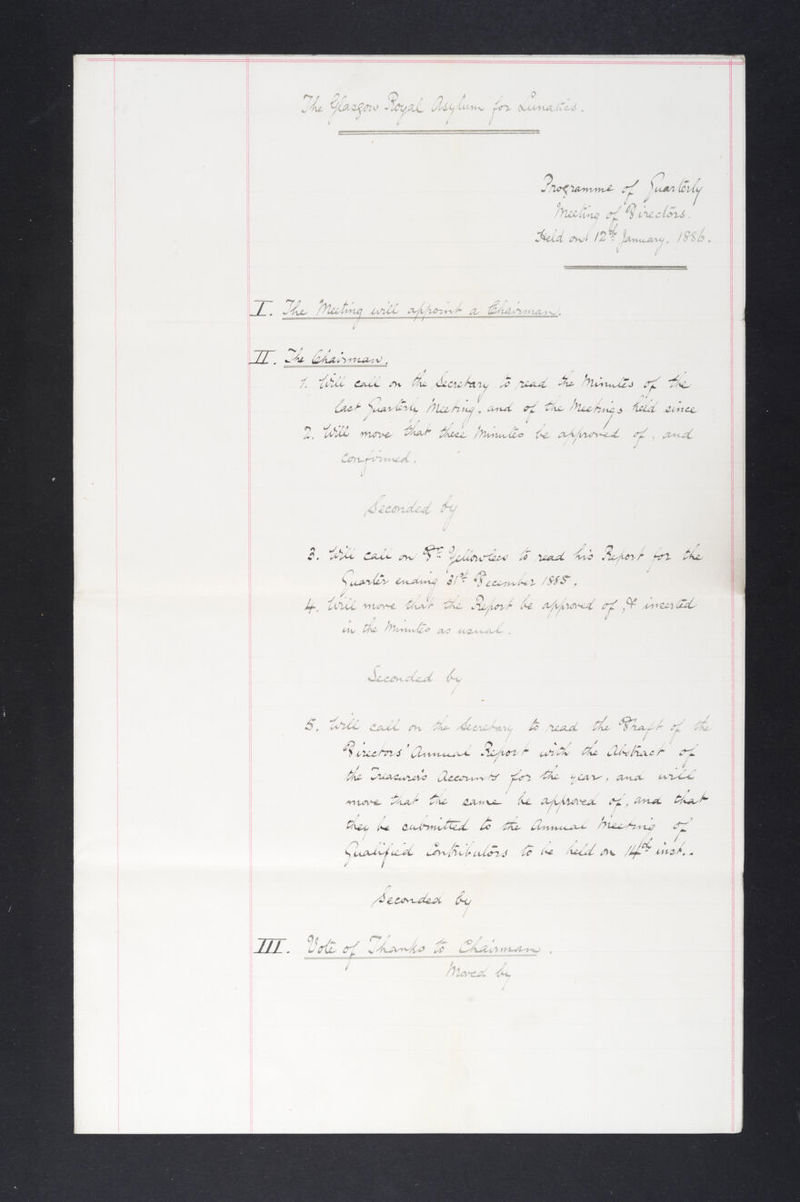 The Glasgow Royal Asylum for Lunatics.
Programme of Quarterly
Meeting of Directors.
Held on 12th January, 1886.
I. The Meeting will appoint a Chairman.
II. The Chairman,
1. Will call on the Secretary to read the Minutes of the
last Quarterly Meeting, and of the Meetings held since
2. Will move that these Minutes be approved of, and
confirmed.
Seconded by
3. Will call on Dr. Yellowlees to read his Report for the
Quarter ending 31st December 1885.
4. Will move that the Report be approved of, & inserted
in the Minutes as usual.
Seconded by
5. Will call on the Secretary to read the Draft of the
Directors' Annual Report with the Abstract of
the Treasurer's Accounts for the year, and will
move that the same be approved of, and that
they be submitted to the Annual Meeting of
Qualified Contributors to be held on 14th inst..
Seconded by
III. Vote of Thanks to Chairman.
Moved by